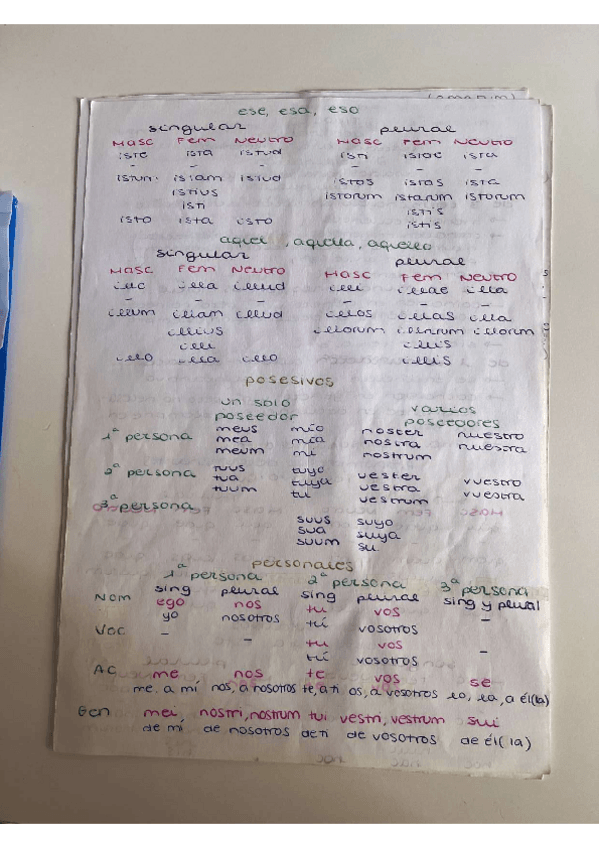 ese, esa, eso
singular plural
Masc Fem Neutro Masc Fem Neutro
iste ista istud isti istae ista
- - - - - -
istum istam istud istos istas ista
istius istorum istarum istorum
isti istis
isto ista isto istis
aquel, aquella, aquello
singular plural
Masc Fem Neutro Masc Fem Neutro
illa illud illi illae illa
- - - - - -
illum illam illud illos illas illa
illius illorum illarum illorum
illi illis
illo illa illo illis
posesivos
un solo varios
poseedor poseedores
1ª persona meus mío noster nuestro
mea mía nostra nuestra
meum mi nostrum
2ª persona tuus tuyo vester vuestro
tua tuya vestra vuestra
tuum tu vestrum
3ª persona
suus suyo
sua suya
suum su
personales
1ª persona 2ª persona 3ª persona
sing plural sing plural sing y plural
Nom ego nos tu vos -
yo nosotros tú vosotros
Voc - - tu vos -
tú vosotros
AC me nos te vos se
me, a mí nos, a nosotros te, a ti os, a vosotros lo, la, a él(la)
Gen mei nostri, nostrum tui vestri, vestrum sui
de mí de nosotros de ti de vosotros de él(la)